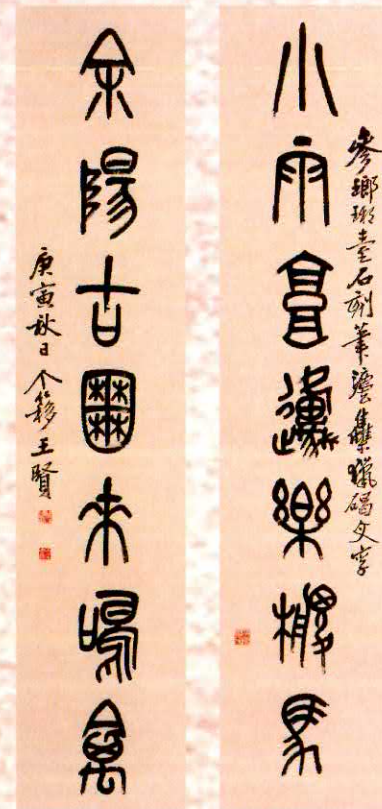 小雨高邍樂馬
參瑯琊臺石刻筆灋集獵碣文字
余陽古囿來鳴禽
庚寅秋日个簃王賢